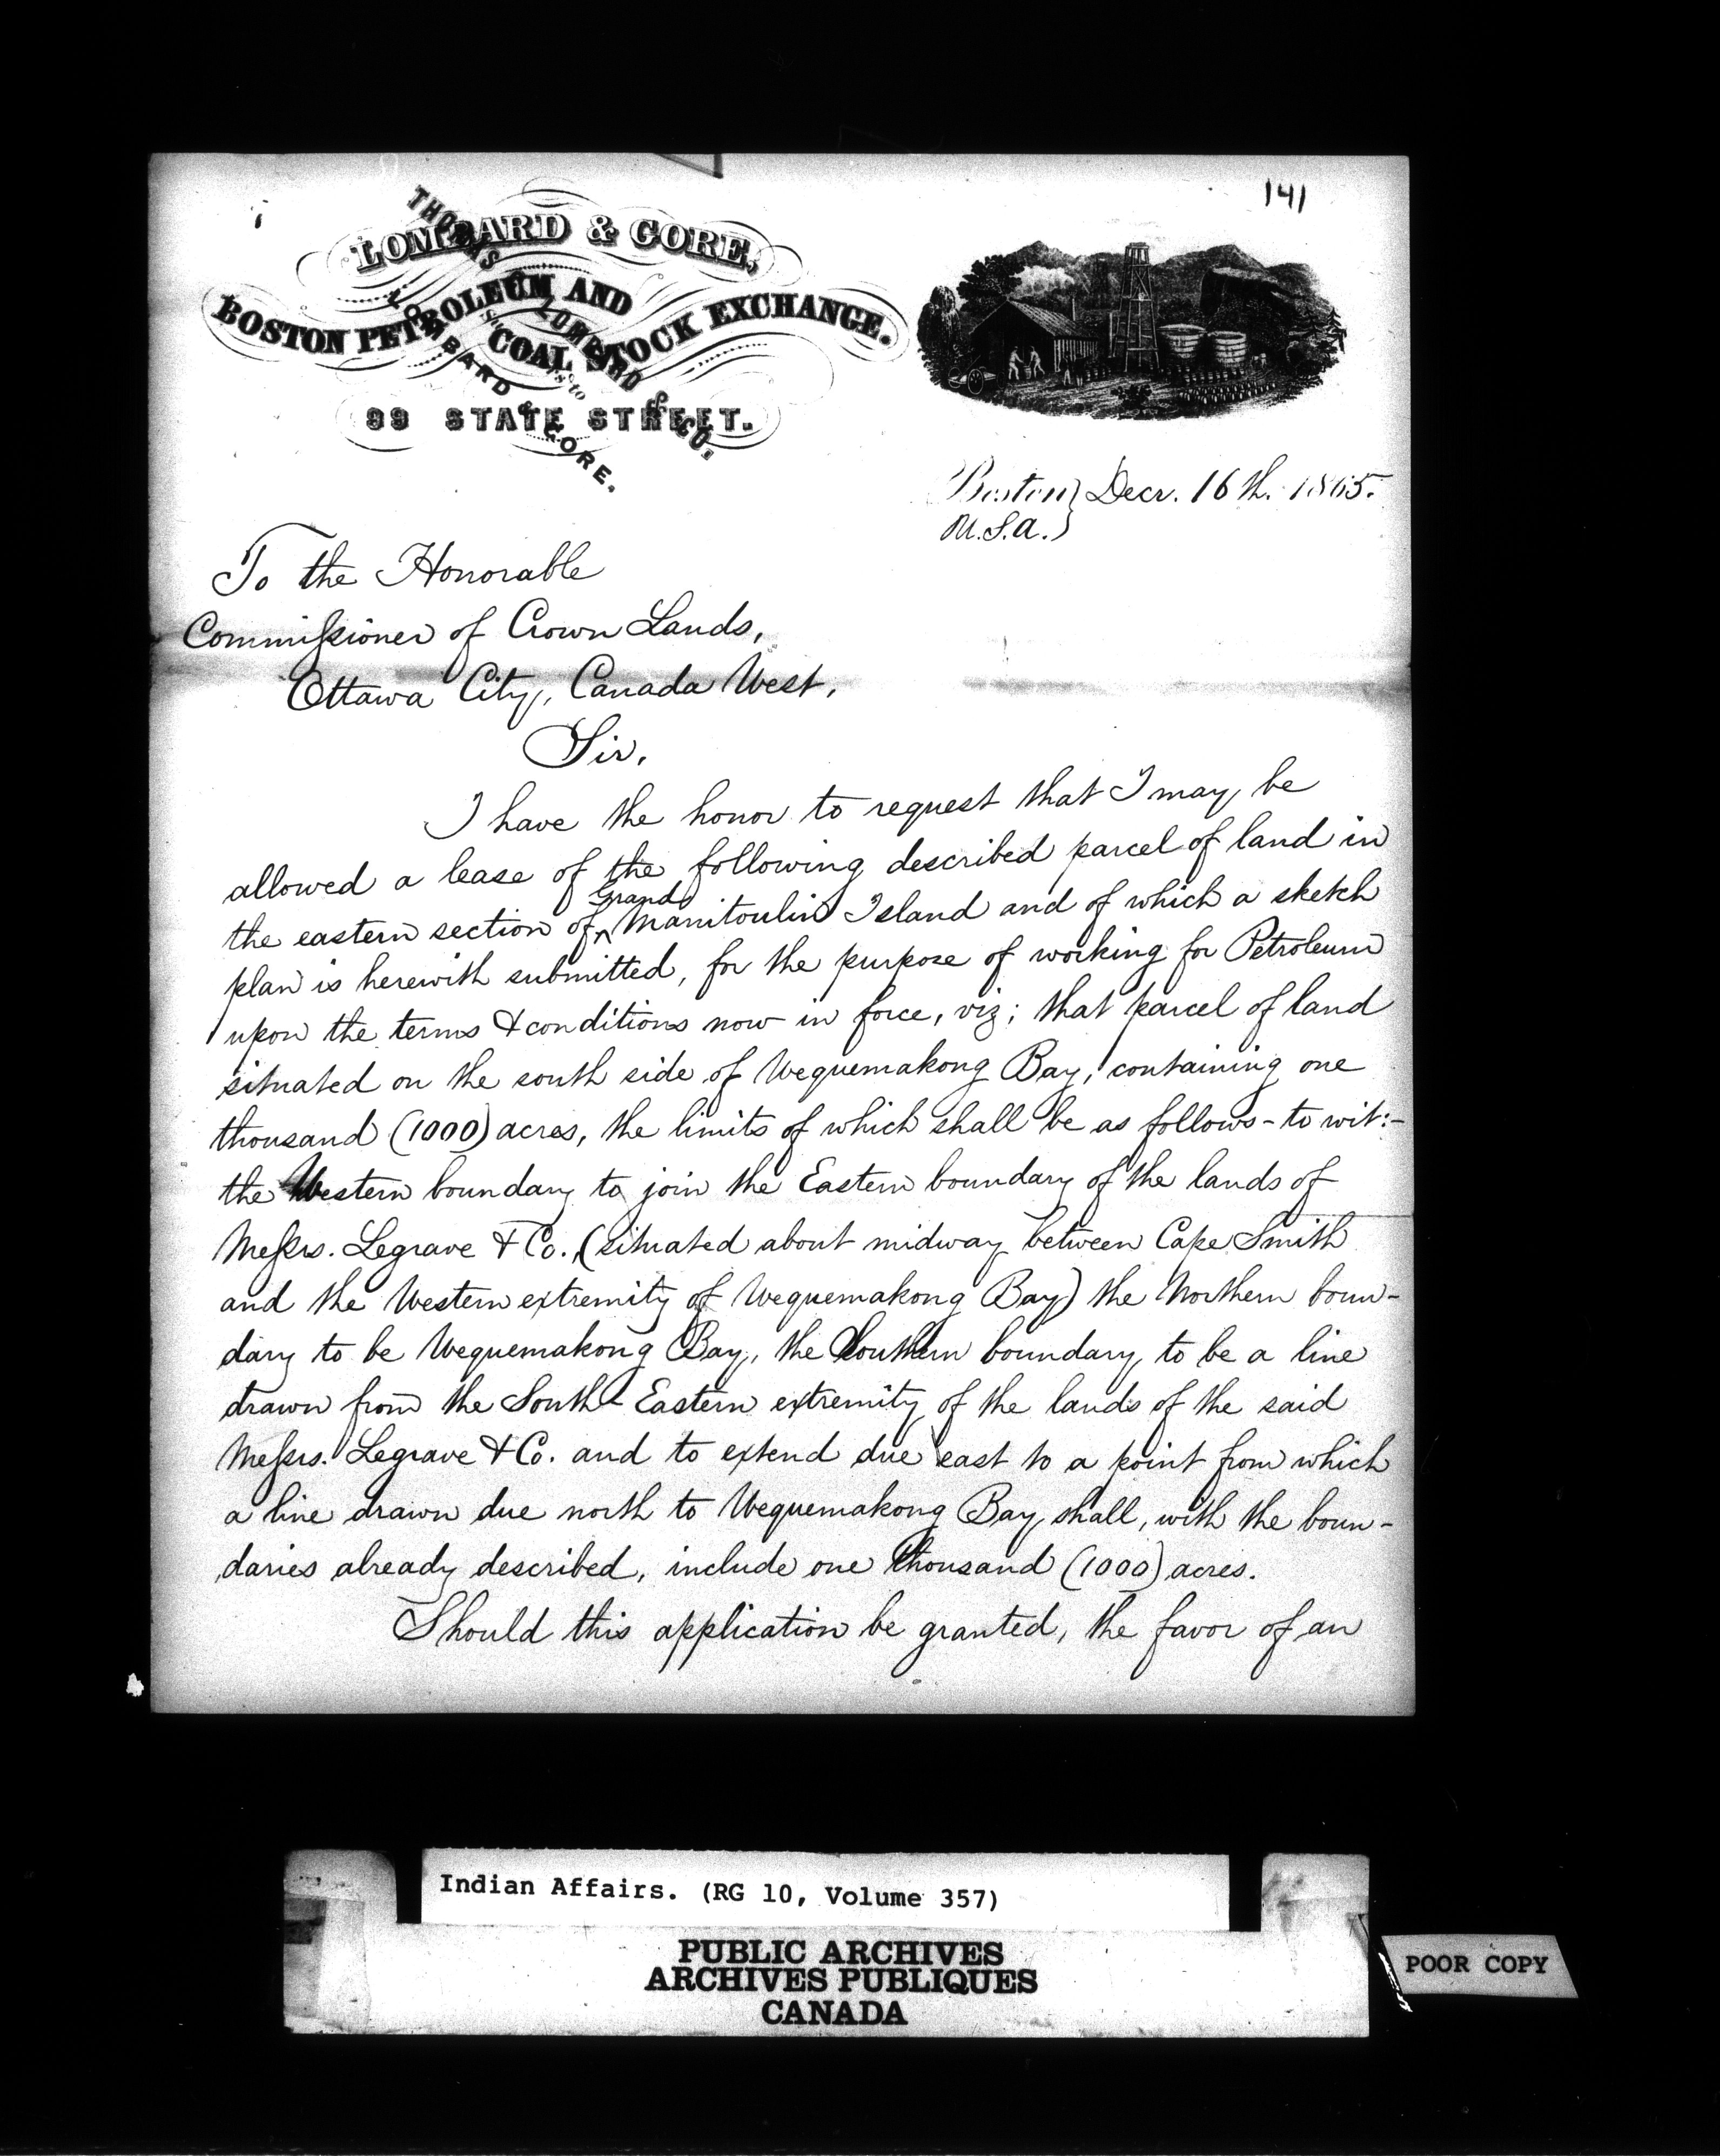 141
LOMBARD & GORE,
BOSTON PETROLEUM AND
COAL STOCK EXCHANGE.
99 STATE STREET.
THOMAS LOMBARD & CO.
LOMBARD & GORE.
Boston } Decr. 16th. 1865.
U.S.A. }
To the Honorable
Commissioner of Crown Lands,
Ottawa City, Canada West,
Sir,
I have the honor to request that I may be
allowed a lease of the following described parcel of land in
the eastern section of ^ Grand Manitoulin Island and of which a sketch
plan is herewith submitted, for the purpose of working for Petroleum
upon the terms & conditions now in force, viz; that parcel of land
situated on the south side of Wequemakong Bay, containing one
thousand (1000) acres, the limits of which shall be as follows - to wit:-
the Western boundary to join the Eastern boundary of the lands of
Messrs. Legrave & Co. (situated about midway between Cape Smith
and the Western extremity of Wequemakong Bay) the Northern boun-
dary to be Wequemakong Bay, the Southern boundary to be a line
drawn from the South-Eastern extremity of the lands of the said
Messrs. Legrave & Co. and to extend due east to a point from which
a line drawn due north to Wequemakong Bay shall, with the boun-
daries already described, include one thousand (1000) acres.
Should this application be granted, the favor of an
Indian Affairs. (RG 10, Volume 357)
PUBLIC ARCHIVES
ARCHIVES PUBLIQUES
CANADA
POOR COPY